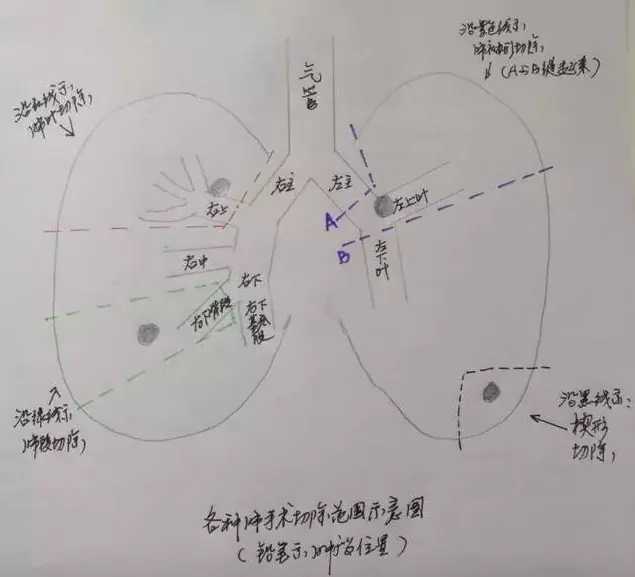 沿蓝色线示
肺袖切除,
(A与B缝起来)
沿红线示,
肺叶切除,
气管
右主
左主
右上
左上叶
A
B
右中
左下叶
右下
右下背段
右下基底段
沿绿线示,
肺段切除,
沿黑线示:
楔形
切除,
各种肺手术切除范围示意图
(铅笔示:肿瘤位置)